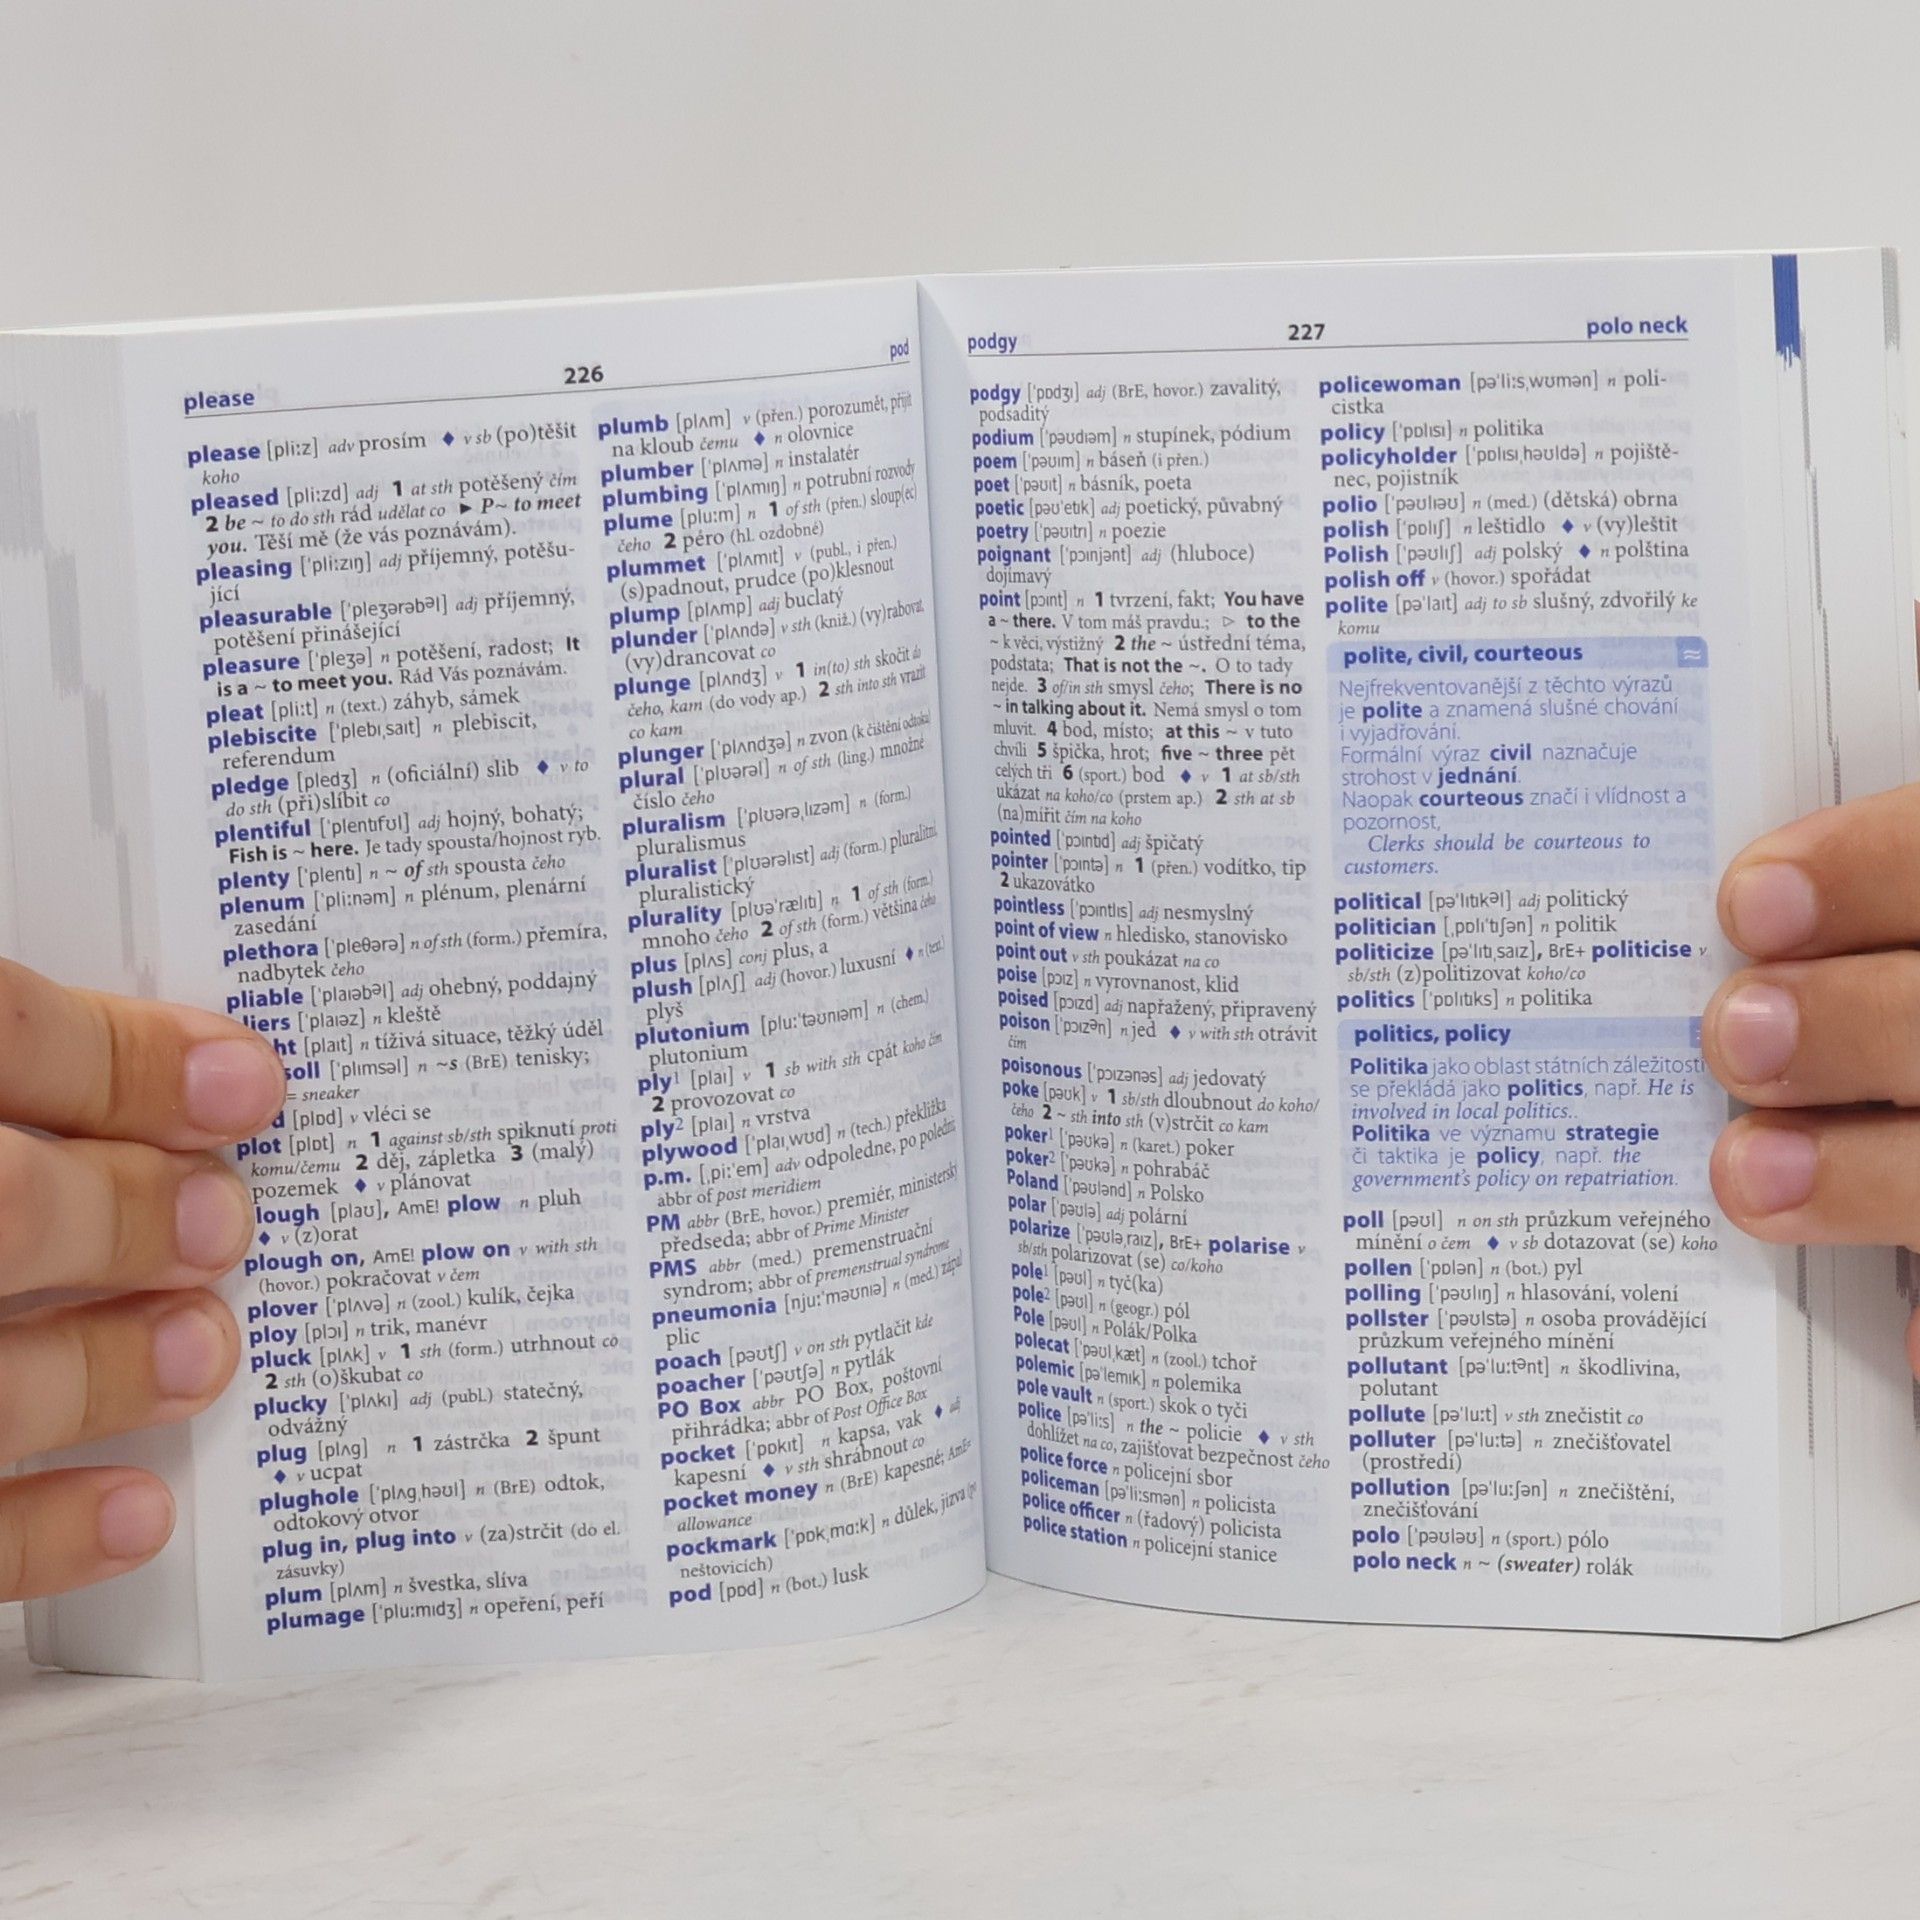 please
226
pod
please [pliːz] adv prosím ♦ v sb (po)těšit
koho
pleased [pliːzd] adj 1 at sth potěšený čím
2 be ~ to do sth rád udělat co ► P~ to meet
you. Těší mě (že vás poznávám).
pleasing [ˈpliːzɪŋ] adj příjemný, potěšu-
jící
pleasurable [ˈpleʒərəbᵊl] adj příjemný,
potěšení přinášející
pleasure [ˈpleʒə] n potěšení, radost; It
is a ~ to meet you. Rád Vás poznávám.
pleat [pliːt] n (text.) záhyb, sámek
plebiscite [ˈplebɪˌsaɪt] n plebiscit,
referendum
pledge [pledʒ] n (oficiální) slib ♦ v to
do sth (při)slíbit co
plentiful [ˈplentɪfʊl] adj hojný, bohatý;
Fish is ~ here. Je tady spousta/hojnost ryb.
plenty [ˈplentɪ] n ~ of sth spousta čeho
plenum [ˈpliːnəm] n plénum, plenární
zasedání
plethora [ˈpleθərə] n of sth (form.) přemíra,
nadbytek čeho
pliable [ˈplaɪəbᵊl] adj ohebný, poddajný
liers [ˈplaɪəz] n kleště
ht [plaɪt] n tíživá situace, těžký úděl
soll [ˈplɪmsəl] n ~s (BrE) tenisky;
= sneaker
d [plɒd] v vléci se
plot [plɒt] n 1 against sb/sth spiknutí proti
komu/čemu 2 děj, zápletka 3 (malý)
pozemek ♦ v plánovat
lough [plaʊ], AmE! plow n pluh
♦ v (z)orat
plough on, AmE! plow on v with sth
(hovor.) pokračovat v čem
plover [ˈplʌvə] n (zool.) kulík, čejka
ploy [plɔɪ] n trik, manévr
pluck [plʌk] v 1 sth (form.) utrhnout co
2 sth (o)škubat co
plucky [ˈplʌkɪ] adj (publ.) statečný,
odvážný
plug [plʌg] n 1 zástrčka 2 špunt
♦ v ucpat
plughole [ˈplʌgˌhəʊl] n (BrE) odtok,
odtokový otvor
plug in, plug into v (za)strčit (do el.
zásuvky)
plum [plʌm] n švestka, slíva
plumage [ˈpluːmɪdʒ] n opeření, peří
plumb [plʌm] v (přen.) porozumět, přijít
na kloub čemu ♦ n olovnice
plumber [ˈplʌmə] n instalatér
plumbing [ˈplʌmɪŋ] n potrubní rozvody
plume [pluːm] n 1 of sth (přen.) sloup(ec)
čeho 2 péro (hl. ozdobné)
plummet [ˈplʌmɪt] v (publ., i přen.)
(s)padnout, prudce (po)klesnout
plump [plʌmp] adj buclatý
plunder [ˈplʌndə] v sth (kniž.) (vy)rabovat,
(vy)drancovat co
plunge [plʌndʒ] v 1 in(to) sth skočit do
čeho, kam (do vody ap.) 2 sth into sth vrazit
co kam
plunger [ˈplʌndʒə] n zvon (k čištění odtoku)
plural [ˈplʊərəl] n of sth (ling.) množné
číslo čeho
pluralism [ˈplʊərəˌlɪzəm] n (form.)
pluralismus
pluralist [ˈplʊərəlɪst] adj (form.) pluralitní,
pluralistický
plurality [plʊəˈrælɪtɪ] n 1 of sth (form.)
mnoho čeho 2 of sth (form.) většina čeho
plus [plʌs] conj plus, a
plush [plʌʃ] adj (hovor.) luxusní ♦ n (text.)
plyš
plutonium [pluːˈtəʊnɪəm] n (chem.)
plutonium
ply¹ [plaɪ] v 1 sb with sth cpát koho čím
2 provozovat co
ply² [plaɪ] n vrstva
plywood [ˈplaɪˌwʊd] n (tech.) překližka
p.m. [ˌpiːˈem] adv odpoledne, po poledni,
abbr of post meridiem
PM abbr (BrE, hovor.) premiér, ministerský
předseda; abbr of Prime Minister
PMS abbr (med.) premenstruační
syndrom; abbr of premenstrual syndrome
pneumonia [njuːˈməʊnɪə] n (med.) zápal
plic
poach [pəʊtʃ] v on sth pytlačit kde
poacher [ˈpəʊtʃə] n pytlák
PO Box abbr PO Box, poštovní
přihrádka; abbr of Post Office Box
pocket [ˈpɒkɪt] n kapsa, vak ♦ adj
kapesní ♦ v sth shrábnout co
pocket money n (BrE) kapesné; AmE=
allowance
pockmark [ˈpɒkˌmɑːk] n důlek, jizva (po
neštovicích)
pod [pɒd] n (bot.) lusk
podgy
227
polo neck
podgy [ˈpɒdʒɪ] adj (BrE, hovor.) zavalitý,
podsaditý
podium [ˈpəʊdɪəm] n stupínek, pódium
poem [ˈpəʊɪm] n báseň (i přen.)
poet [ˈpəʊɪt] n básník, poeta
poetic [pəʊˈetɪk] adj poetický, půvabný
poetry [ˈpəʊɪtrɪ] n poezie
poignant [ˈpɔɪnjənt] adj (hluboce)
dojímavý
point [pɔɪnt] n 1 tvrzení, fakt; You have
a ~ there. V tom máš pravdu.; ▷ to the
~ k věci, výstižný 2 the ~ ústřední téma,
podstata; That is not the ~. O to tady
nejde. 3 of/in sth smysl čeho; There is no
~ in talking about it. Nemá smysl o tom
mluvit. 4 bod, místo; at this ~ v tuto
chvíli 5 špička, hrot; five ~ three pět
celých tři 6 (sport.) bod ♦ v 1 at sb/sth
ukázat na koho/co (prstem ap.) 2 sth at sb
(na)mířit čím na koho
pointed [ˈpɔɪntɪd] adj špičatý
pointer [ˈpɔɪntə] n 1 (přen.) vodítko, tip
2 ukazovátko
pointless [ˈpɔɪntlɪs] adj nesmyslný
point of view n hledisko, stanovisko
point out v sth poukázat na co
poise [pɔɪz] n vyrovnanost, klid
poised [pɔɪzd] adj napřažený, připravený
poison [ˈpɔɪzᵊn] n jed ♦ v with sth otrávit
čím
poisonous [ˈpɔɪzənəs] adj jedovatý
poke [pəʊk] v 1 sb/sth dloubnout do koho/
čeho 2 ~ sth into sth (v)strčit co kam
poker¹ [ˈpəʊkə] n (karet.) poker
poker² [ˈpəʊkə] n pohrabáč
Poland [ˈpəʊlənd] n Polsko
polar [ˈpəʊlə] adj polární
polarize [ˈpəʊləˌraɪz], BrE+ polarise v
sb/sth polarizovat (se) co/koho
pole¹ [pəʊl] n tyč(ka)
pole² [pəʊl] n (geogr.) pól
Pole [pəʊl] n Polák/Polka
polecat [ˈpəʊlˌkæt] n (zool.) tchoř
polemic [pəˈlemɪk] n polemika
pole vault n (sport.) skok o tyči
police [pəˈliːs] n the ~ policie ♦ v sth
dohlížet na co, zajišťovat bezpečnost čeho
police force n policejní sbor
policeman [pəˈliːsmən] n policista
police officer n (řadový) policista
police station n policejní stanice
policewoman [pəˈliːsˌwʊmən] n poli-
cistka
policy [ˈpɒlɪsɪ] n politika
policyholder [ˈpɒlɪsɪˌhəʊldə] n pojiště-
nec, pojistník
polio [ˈpəʊlɪəʊ] n (med.) (dětská) obrna
polish [ˈpɒlɪʃ] n leštidlo ♦ v (vy)leštit
Polish [ˈpəʊlɪʃ] adj polský ♦ n polština
polish off v (hovor.) spořádat
polite [pəˈlaɪt] adj to sb slušný, zdvořilý ke
komu
polite, civil, courteous ≈
Nejfrekventovanější z těchto výrazů
je polite a znamená slušné chování
i vyjadřování.
Formální výraz civil naznačuje
strohost v jednání.
Naopak courteous značí i vlídnost a
pozornost,
Clerks should be courteous to
customers.
political [pəˈlɪtɪkᵊl] adj politický
politician [ˌpɒlɪˈtɪʃən] n politik
politicize [pəˈlɪtɪˌsaɪz], BrE+ politicise v
sb/sth (z)politizovat koho/co
politics [ˈpɒlɪtɪks] n politika
politics, policy
Politika jako oblast státních záležitostí
se překládá jako politics, např. He is
involved in local politics..
Politika ve významu strategie
či taktika je policy, např. the
government's policy on repatriation.
poll [pəʊl] n on sth průzkum veřejného
mínění o čem ♦ v sb dotazovat (se) koho
pollen [ˈpɒlən] n (bot.) pyl
polling [ˈpəʊlɪŋ] n hlasování, volení
pollster [ˈpəʊlstə] n osoba provádějící
průzkum veřejného mínění
pollutant [pəˈluːtᵊnt] n škodlivina,
polutant
pollute [pəˈluːt] v sth znečistit co
polluter [pəˈluːtə] n znečišťovatel
(prostředí)
pollution [pəˈluːʃən] n znečištění,
znečišťování
polo [ˈpəʊləʊ] n (sport.) pólo
polo neck n ~ (sweater) rolák